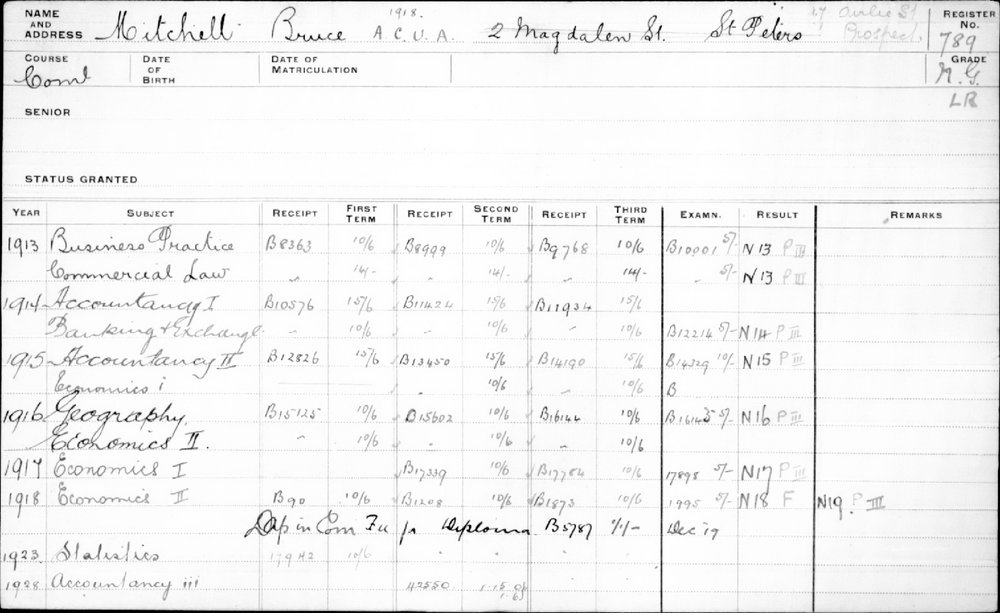 NAME AND ADDRESS Mitchell Bruce A.C.U.A. 1918. 2 Magdalen St. St Peters 17 Airlie St Prospect. REGISTER No. 789
COURSE Coml DATE OF BIRTH DATE OF MATRICULATION GRADE N.G.
LR
SENIOR
STATUS GRANTED
YEAR SUBJECT RECEIPT FIRST TERM RECEIPT SECOND TERM RECEIPT THIRD TERM EXAMN. RESULT REMARKS
1913 Business Practice B8363 10/6 B8999 10/6 B9768 10/6 B10001 5/- N13 P III
Commercial Law " 14/- " 14/- " 14/- " 5/- N13 P III
1914 Accountancy I B10576 15/6 B11424 15/6 B11934 15/6
Banking & Exchange " 10/6 " 10/6 " 10/6 B12214 5/- N14 P III
1915 Accountancy II B12826 15/6 B13450 15/6 B14190 15/6 B14329 10/- N15 P III
Economics I 10/6 " 10/6 B
1916 Geography B15125 10/6 B15602 10/6 B16144 10/6 B16145 5/- N16 P III
Economics II. " 10/6 " 10/6 " 10/6
1917 Economics I B17339 10/6 B17784 10/6 17898 5/- N17 P III
1918 Economics II B90 10/6 B1208 10/6 B1873 10/6 1995 5/- N18 F N19. P III
Dip in Com Fee for Diploma B5787 Dec '19
1923 Statistics 17942 10/6
1928 Accountancy iii 42550 1.15.0